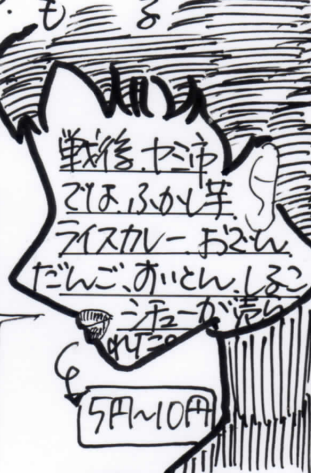 も る
戦後、ヤミ市
では、ふかし芋、
ライスカレー、おでん、
だんご、すいとん、しるこ
シチューが売ら
れた。
5円〜10円